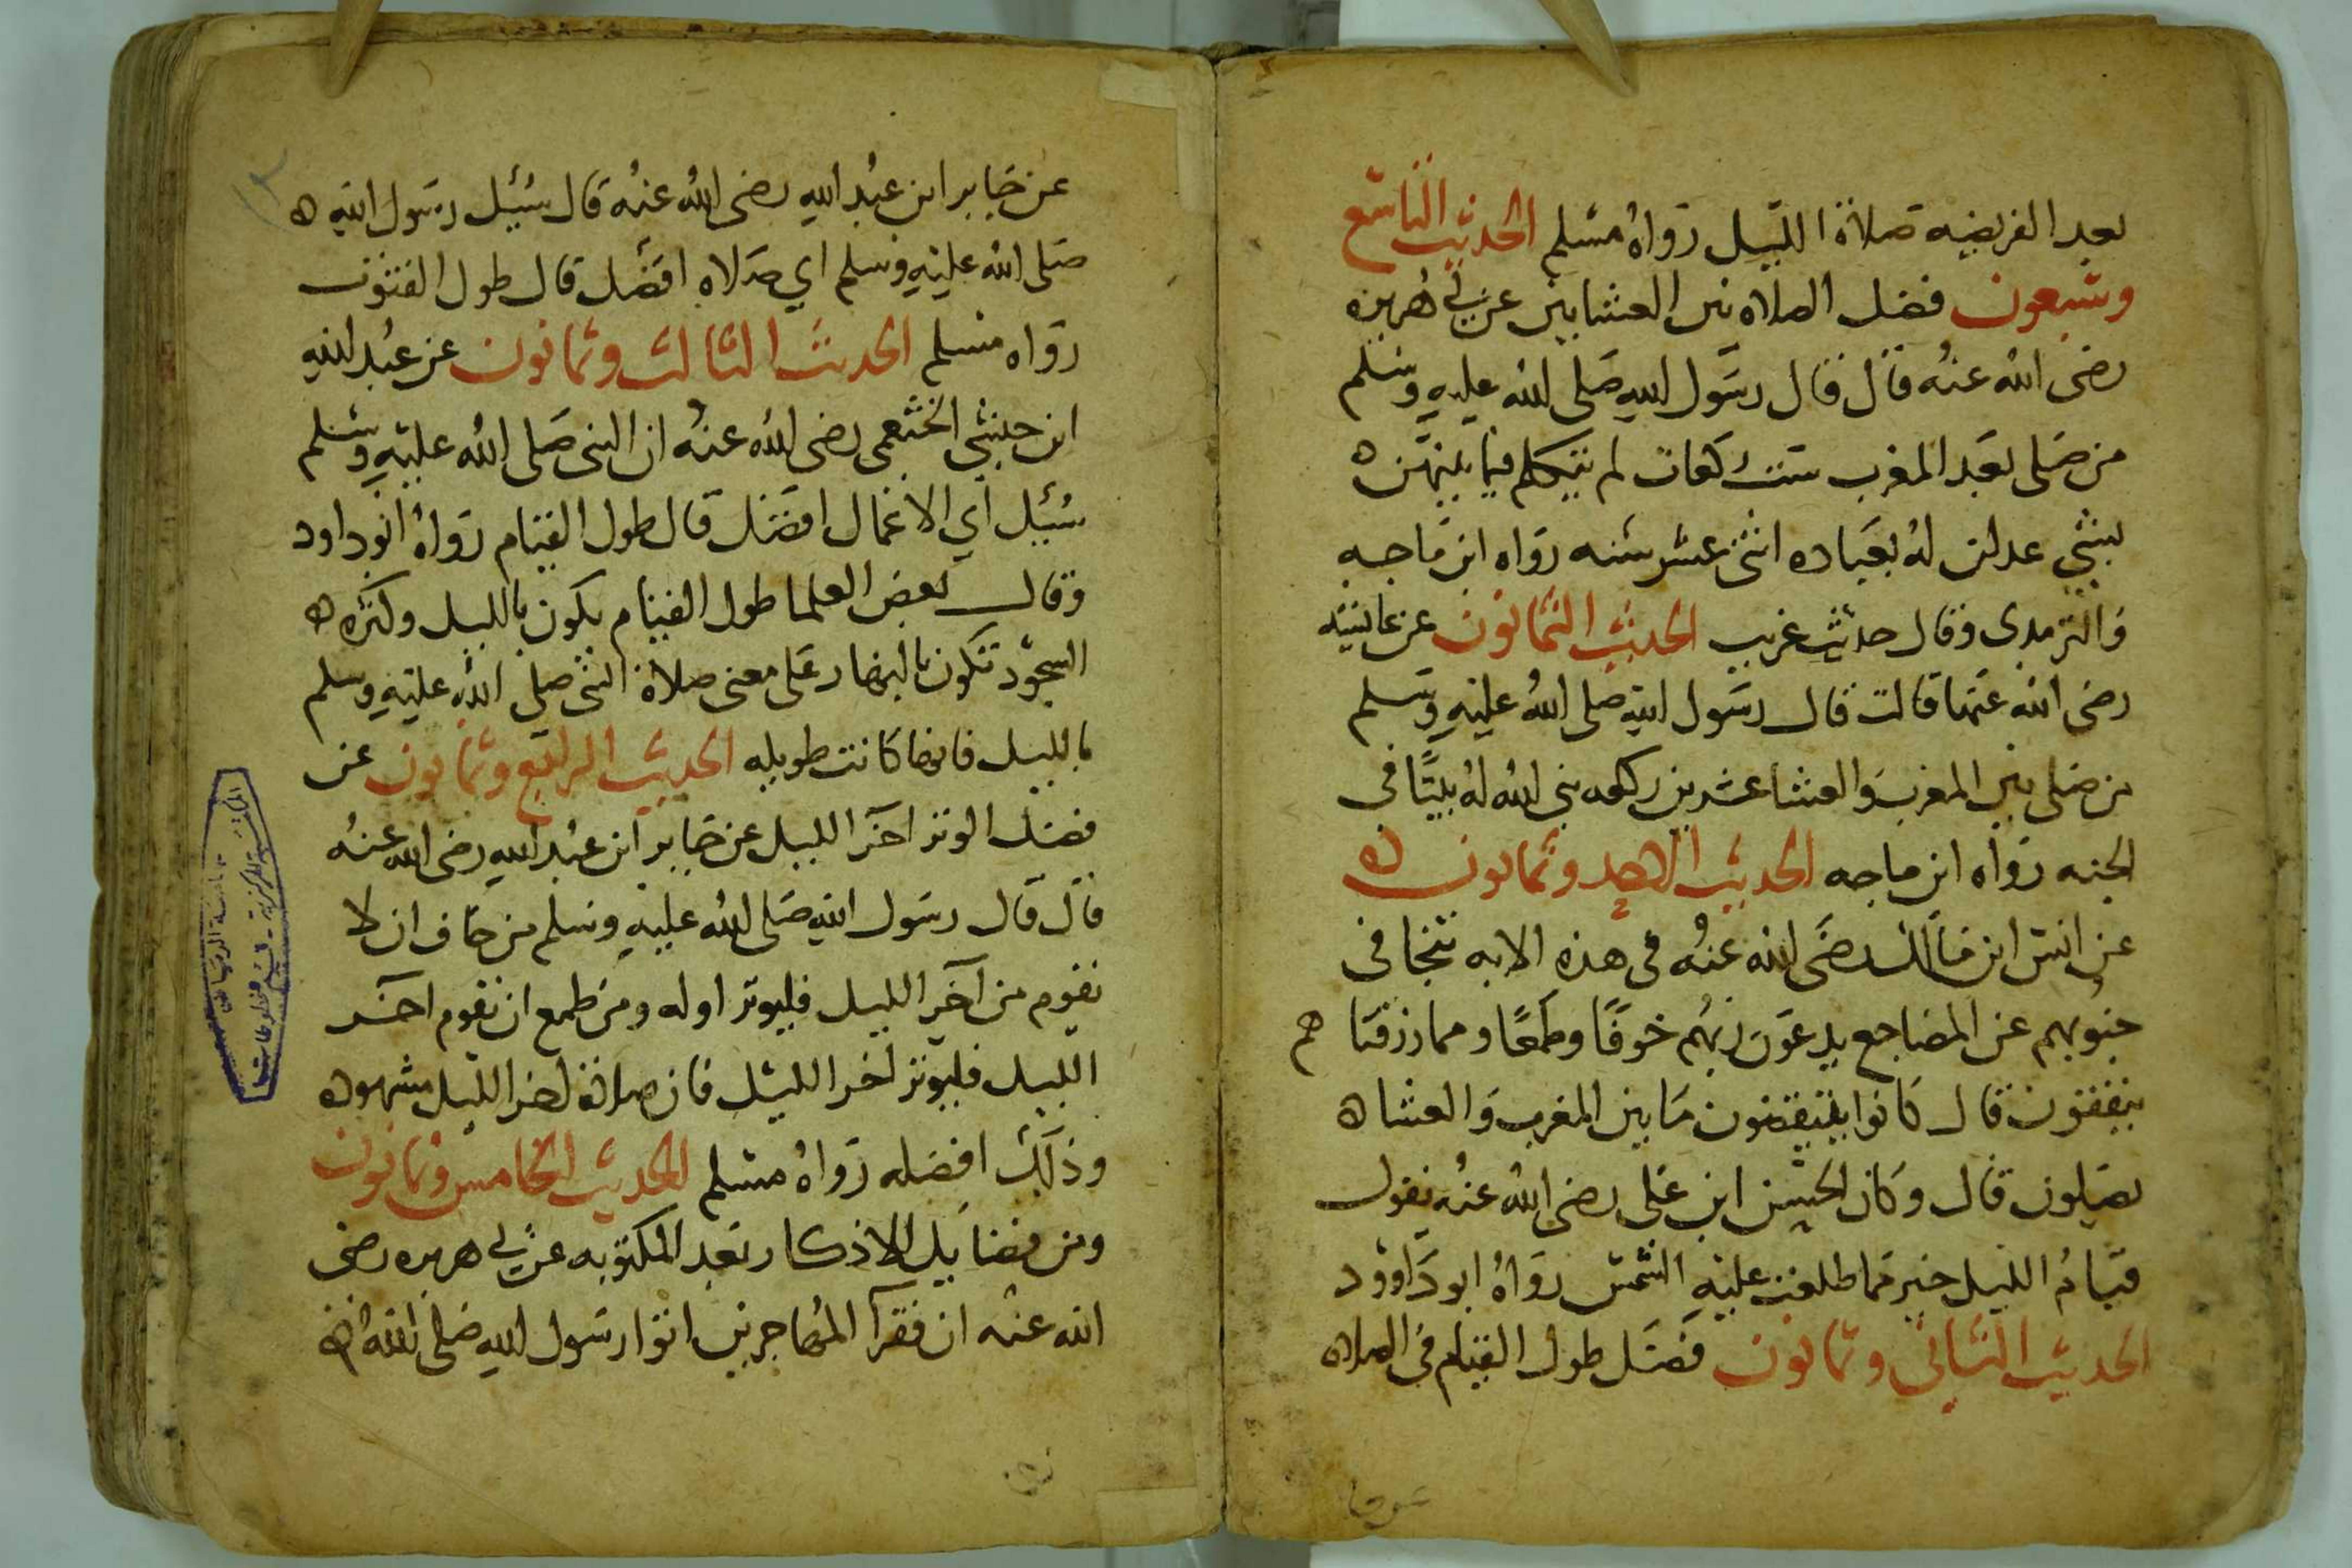 بعد الفريضه صلاة الليل رواه مسلم الحديث التاسع
وسبعون فضل الصلاه بين العشايين عن ابي هريره
رضى الله عنه قال قال رسول الله صلى الله عليه وسلم
من صلى بعد المغرب ست ركعات لم يتكلم فيما بينهن ه
بشي عدلن له بعباده اثنى عشر سنه رواه ابن ماجه
والترمدى وقال حديث غريب الحديث الثمانون عن عايشه
رضى الله عنها قالت قال رسول الله صلى الله عليه وسلم
من صلى بين المغرب والعشا عشرين ركعه بنى الله له بيتًا في
الجنه رواه ابن ماجه الحديث الاحد وثمانون ه
عن انس ابن مالك رضى الله عنه في هذه الايه تتجافى
جنوبهم عن المضاجع يدعون ربهم خوفًا وطمعًا ومما رزقناهم
ينفقون قال كانوا يتيقضون ما بين المغرب والعشا ه
يصلون قال وكان الحسن ابن على رضى الله عنه يقول
قيام الليل خير مما طلعت عليه الشمس رواه ابو داوود
الحديث الثاني وثمانون فضل طول القيام في الصلاه
عن جابر ابن عبد الله رضى الله عنه قال سئيل رسول الله ه
صلى الله عليه وسلم اي صلاه افضل قال طول القنوت
رواه مسلم الحديث الثالث وثمانون عن عبد الله
ابن حبشي الخثعمى رضى الله عنه ان النبى صلى الله عليه وسلم
سئيل اي الاعمال افضل قال طول القيام رواه ابو داود
وقال بعض العلما طول القيام يكون بالليل وكثره ه
السجود تكون بالنهار على معنى صلاة النبى صلى الله عليه وسلم
بالليل فانها كانت طويله الحديث الرابع وثمانون عن
فضل الوتر اخر الليل عن جابر ابن عبد الله رضى الله عنه
قال قال رسول الله صلى الله عليه وسلم من خاف ان لا
يقوم من آخر الليل فليوتر اوله ومن طمع ان يقوم اخر
الليل فليوتر اخر الليل فان صلاة اخر الليل مشهوده
وذلك افضله رواه مسلم الحديث الخامس وثمانون
ومن فضايل الاذكار بعد المكتوبه عن ابي هريره رضى
الله عنه ان فقرآ المهاجرين اتوا رسول الله صلى الله